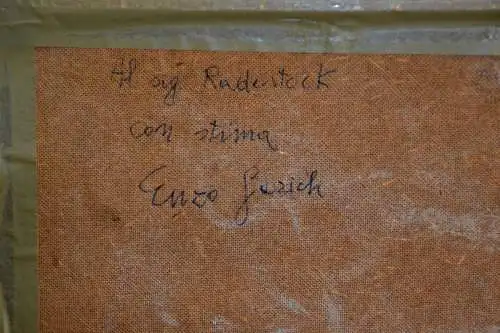 Al sig Raderstock
con stima
Enzo Gerich